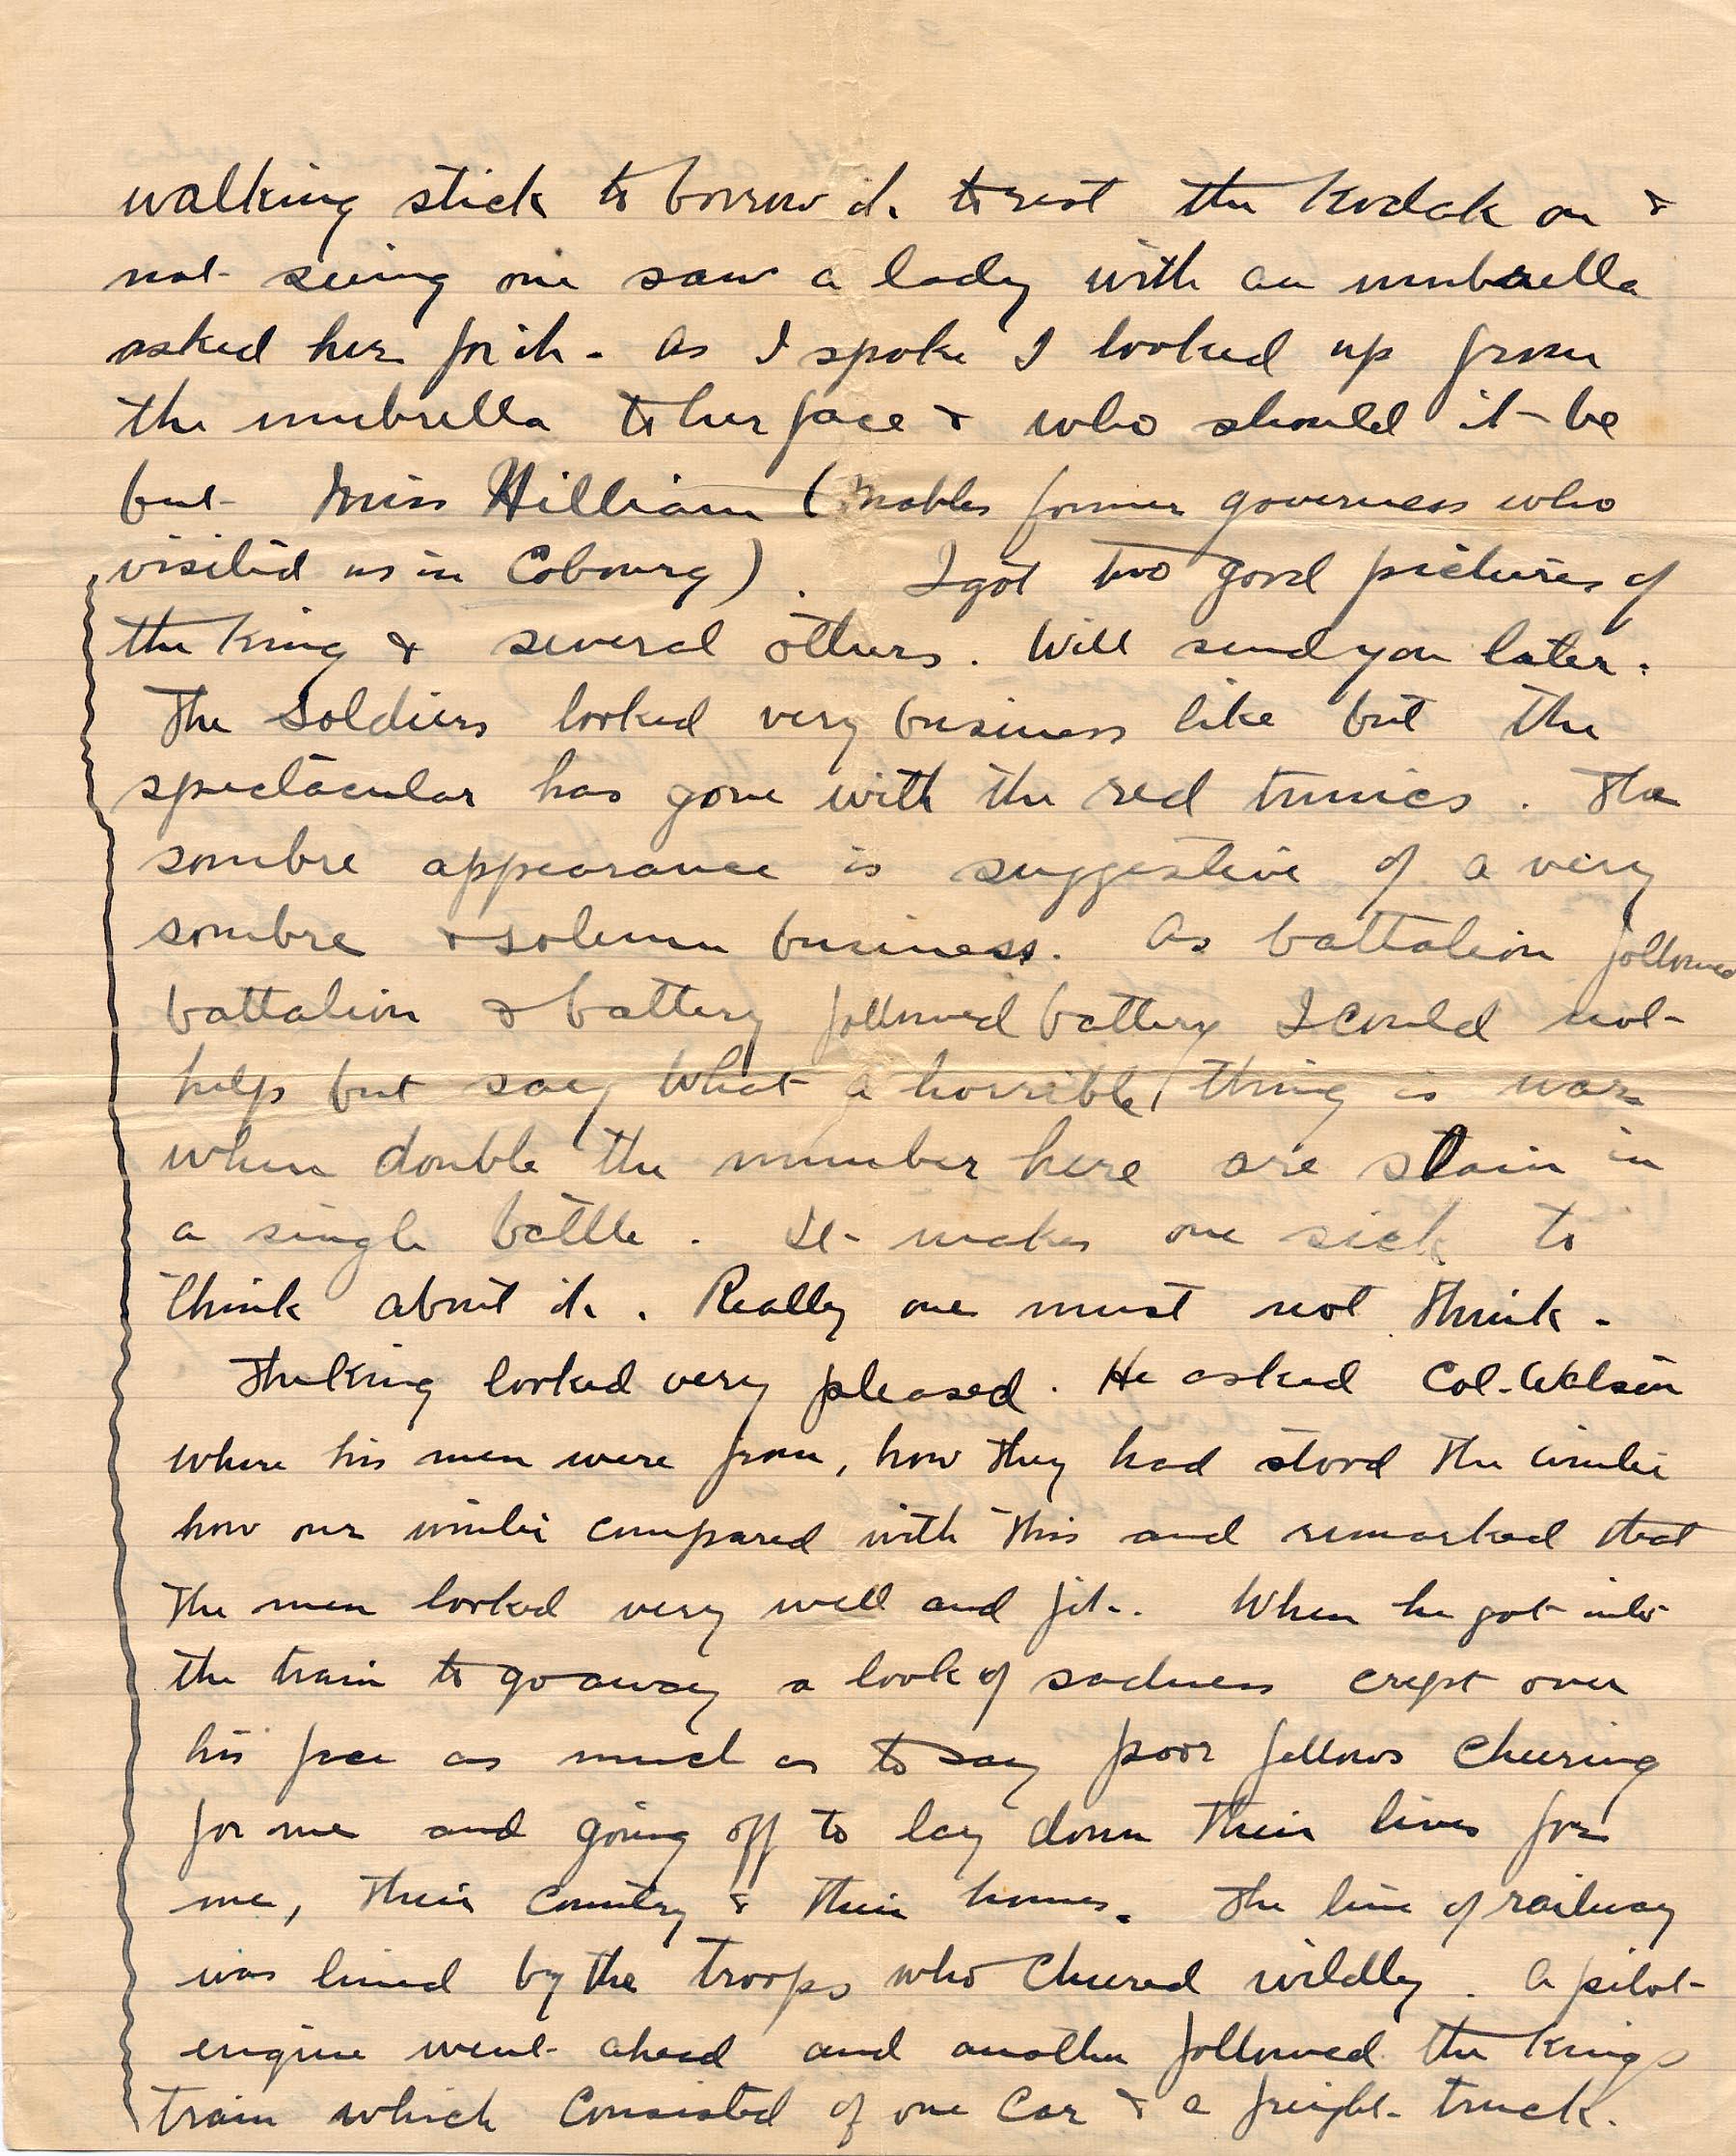 walking stick to borrow it to rest the Kodak on &
not seeing one saw a lady with an umbrella
asked her for it - as I spoke I looked up from
the umbrella to her face & who should it be
but Miss William (Mables former governess who
visited us in Cobourg). I got two good pictures of
the King & several others. Will send you later.
The Soldiers looked very business like but the
spectacular has gone with the red tunics. The
sombre appearance is suggestive of a very
sombre & solemn business. As battalion followed
battalion & battery followed battery I could not
help but say what a horrible thing is war
when double the number here are slain in
a single battle. It makes one sick to
think about it. Really one must not think.
The King looked very pleased. He asked Col. Watson
where his men were from, how they had stood the winter
how our winter compared with this and remarked that
the men looked very well and fit. When he got into
the train to go away a look of sadness crept over
his face as much as to say poor fellows cheering
for me and going off to lay down their lives for
me, their country & their homes. The line of railway
was lined by the troops who cheered wildly. A pilot
engine went ahead and another followed the Kings
train which consisted of one car & a freight truck.